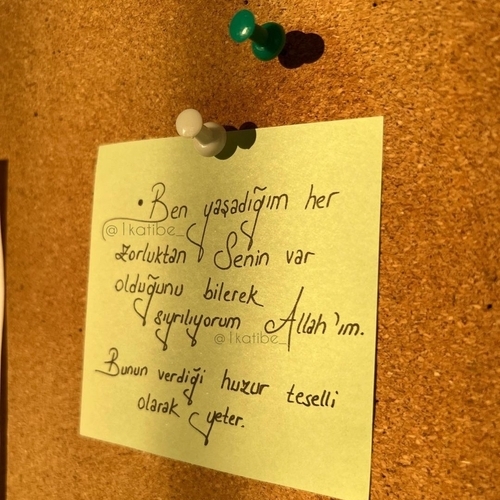 • Ben yaşadığım her
@1katibe_
zorluktan Senin var
olduğunu bilerek
sıyrılıyorum Allah'ım.
@1katibe_
Bunun verdiği huzur teselli
olarak yeter.